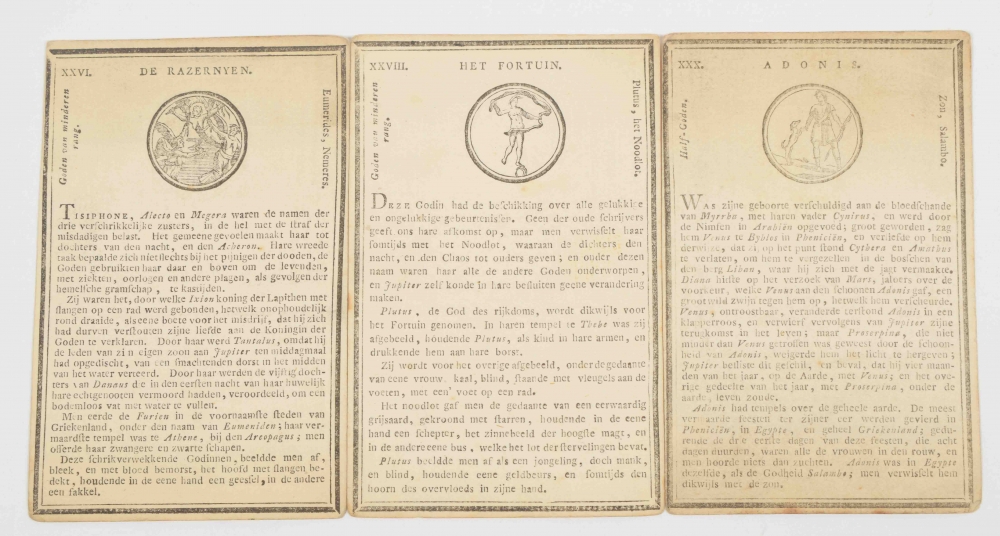 XXVI. DE RAZERNYEN.
Goden van minderen
rang.
Eumerides, Nemeres.
TISIPHONE, Alecto en Megera waren de namen der
drie verschrikkelijke zusters, in de hel met de straf der
misdadigen belast. Het gemeene gevoelen maakt haar tot
dochters van den nacht, en den Acheron. Hare wreede
taak bepaalde zich niet slechts bij het pijnigen der dooden, de
Goden gebruikten haar daar en boven om de levenden,
met ziekten, oorlogen en andere plagen, als gevolgen der
hemelsche gramschap, te kastijden.
Zij waren het, door welke Ixion koning der Lapithen met
slangen op een rad werd gebonden, hetwelk onophoudelijk
rond draaide, als eene boete voor het misdrijf, dat hij zich
had durven verstouten zijne liefde aan de Koningin der
Goden te verklaren. Door haar werd Tantalus, omdat hij
de leden van zijn eigen zoon aan Jupiter ten middagmaal
had opgedischt, van een smachtenden dorst in het midden
van het water verteerd. Door haar werden de vijftig doch-
ters van Danaus die in den eersten nacht van haar huwelijk
hare echtgenooten vermoord hadden, veroordeeld, om een
bodemloos vat met water te vullen.
Men eerde de Furien in de voornaamste steden van
Griekenland, onder den naam van Eumeniden; haar ver-
maardste tempel was te Athene, bij den Areopagus; men
offerde haar zwangere en zwarte schapen.
Deze schrikverwekkende Godinnen, beeldde men af,
bleek, en met bloed bemorst, het hoofd met slangen be-
dekt, houdende in de eene hand een geessel, in de andere
een fakkel.
XXVIII. HET FORTUIN.
Goden van minderen
rang.
Plutus, het Noodlot.
DEZE Godin had de beschikking over alle gelukkige
en ongelukkige gebeurtenissen. Geen der oude schrijvers
geeft ons hare afkomst op, maar men verwisselt haar
somtijds met het Noodlot, waaraan de dichters den
nacht, en den Chaos tot ouders geven; en onder dezen
naam waren haar alle de andere Goden onderworpen,
en Jupiter zelf konde in hare besluiten geene verandering
maken.
Plutus, de God des rijkdoms, wordt dikwijls voor
het Fortuin genomen. In haren tempel te Thebe was zij
afgebeeld, houdende Plutus, als kind in hare armen, en
drukkende hem aan hare borst.
Zij wordt voor het overige afgebeeld, onder de gedaante
van eene vrouw, kaal, blind, staande met vleugels aan de
voeten, met een' voet op een rad.
Het noodlot gaf men de gedaante van een eerwaardig
grijsaard, gekroond met starren, houdende in de eene
hand een schepter, het zinnebeeld der hoogste magt, en
in de andere eene bus, welke het lot der stervelingen bevat.
Plutus beeldde men af als een jongeling, doch mank,
en blind, houdende eene geldbeurs, en somtijds den
hoorn des overvloeds in zijne hand.
XXX. ADONIS.
Half-Goden.
Zon, Salambo.
WAS zijne geboorte verschuldigd aan de bloedschande
van Myrrha, met haren vader Cynirus, en werd door
de Nimfen in Arabiën opgevoed; groot geworden, zag
hem Venus te Byblos in Pheniciën, en verliefde op hem
dermate, dat zij op het punt stond Cythera en Amathus
te verlaten, om hem te vergezellen in de bosschen van
den berg Liban, waar hij zich met de jagt vermaakte.
Diana hitste op het verzoek van Mars, jaloers over de
voorkeur, welke Venus aan den schoonen Adonis gaf, een
groot wild zwijn tegen hem op, hetwelk hem verscheurde.
Venus, ontroostbaar, veranderde stervend Adonis in een
klapperroos, en verwierf vervolgens van Jupiter zijne
terugkomst in het leven; maar Proserpina, die niet
minder dan Venus getroffen was geweest door de schoon-
heid van Adonis, weigerde hem het licht te hergeven;
Jupiter besliste dit geschil, en beval, dat hij vier maan-
den van het jaar, op de Aarde, met Venus; en het ove-
rige gedeelte van het jaar, met Proserpina, onder de
aarde, leven zoude.
Adonis had tempels over de geheele aarde. De meest
vermaarde feesten ter zijner eer werden gevierd in
Pheniciën, in Egypte, en geheel Griekenland; gedu-
rende de drie eerste dagen van deze feesten, die acht
dagen duurden, waren alle de vrouwen in den rouw, en
men hoorde niets dan zuchten. Adonis was in Egypte
dezelfde, als de Godheid Salambo; men verwisselt hem
dikwijls met de zon.